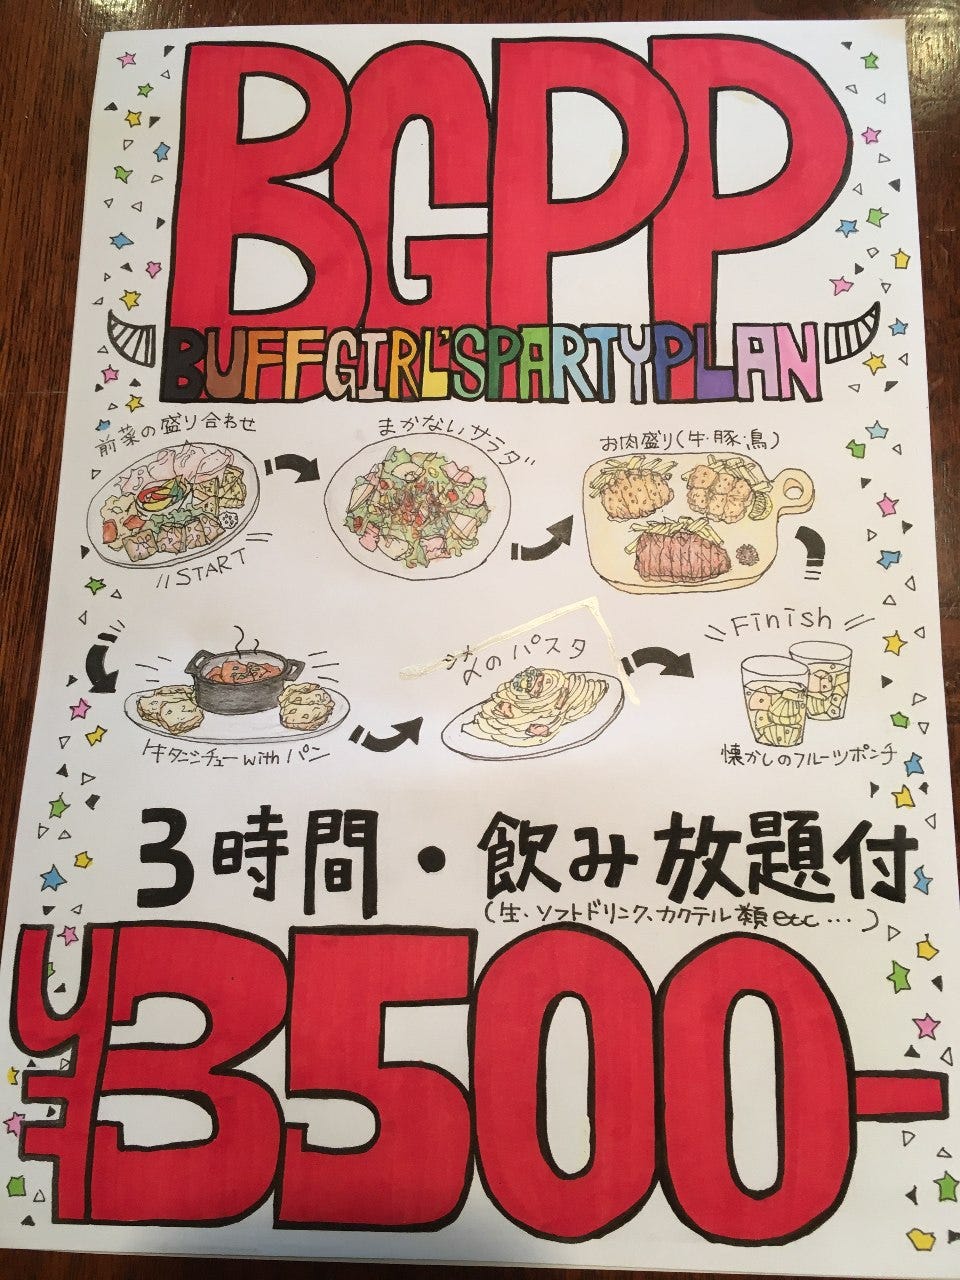 BGPP
BUFFGIRL'SPARTYPLAN
前菜の盛り合わせ
START
まかないサラダ
お肉盛り(牛・豚・鳥)
牛タンシチューwithパン
〆のパスタ
Finish
懐かしのフルーツポンチ
3時間・飲み放題付
(生、ソフトドリンク、カクテル類etc...)
¥3500-